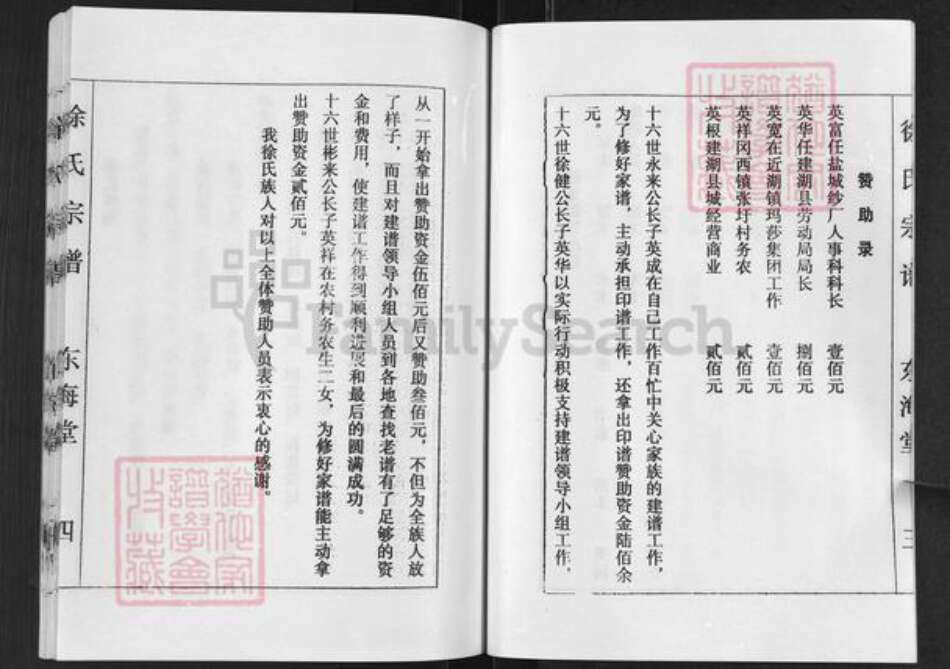 徐氏宗谱
东海堂
三
赞助录
英富任盐城纱厂人事科科长 壹佰元
英华任建湖县劳动局局长 捌佰元
英宽在近湖镇玛莎集团工作 壹佰元
英祥冈西镇张圩村务农 贰佰元
英根建湖县城经营商业 贰佰元
十六世永来公长子英成在自己工作百忙中关心家族的建谱工作，
为了修好家谱，主动承担印谱工作，还拿出印谱赞助资金陆佰余
元。
十六世徐健公长子英华以实际行动积极支持建谱领导小组工作，
从一开始拿出赞助资金伍佰元后又赞助叁佰元，不但为全族人放
了样子，而且对建谱领导小组人员到各地查找老谱有了足够的资
金和费用，使建谱工作得到顺利进展和最后的圆满成功。
十六世彬来公长子英祥在农村务农生二女，为修好家谱能主动拿
出赞助资金贰佰元。
我徐氏族人对以上全体赞助人员表示衷心的感谢。
徐氏宗谱
东海堂
四
FamilySearch